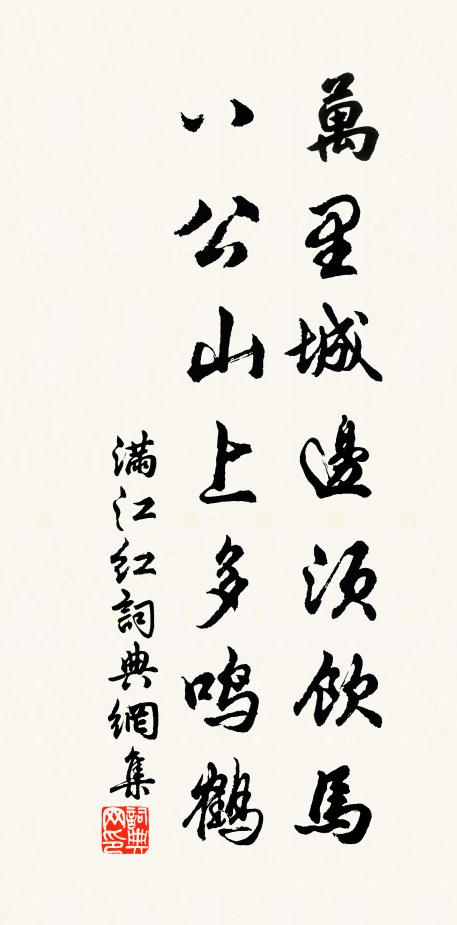 萬里城邊須飲馬
八公山上多鳴鶴
满江红詞典網集
詞典网印